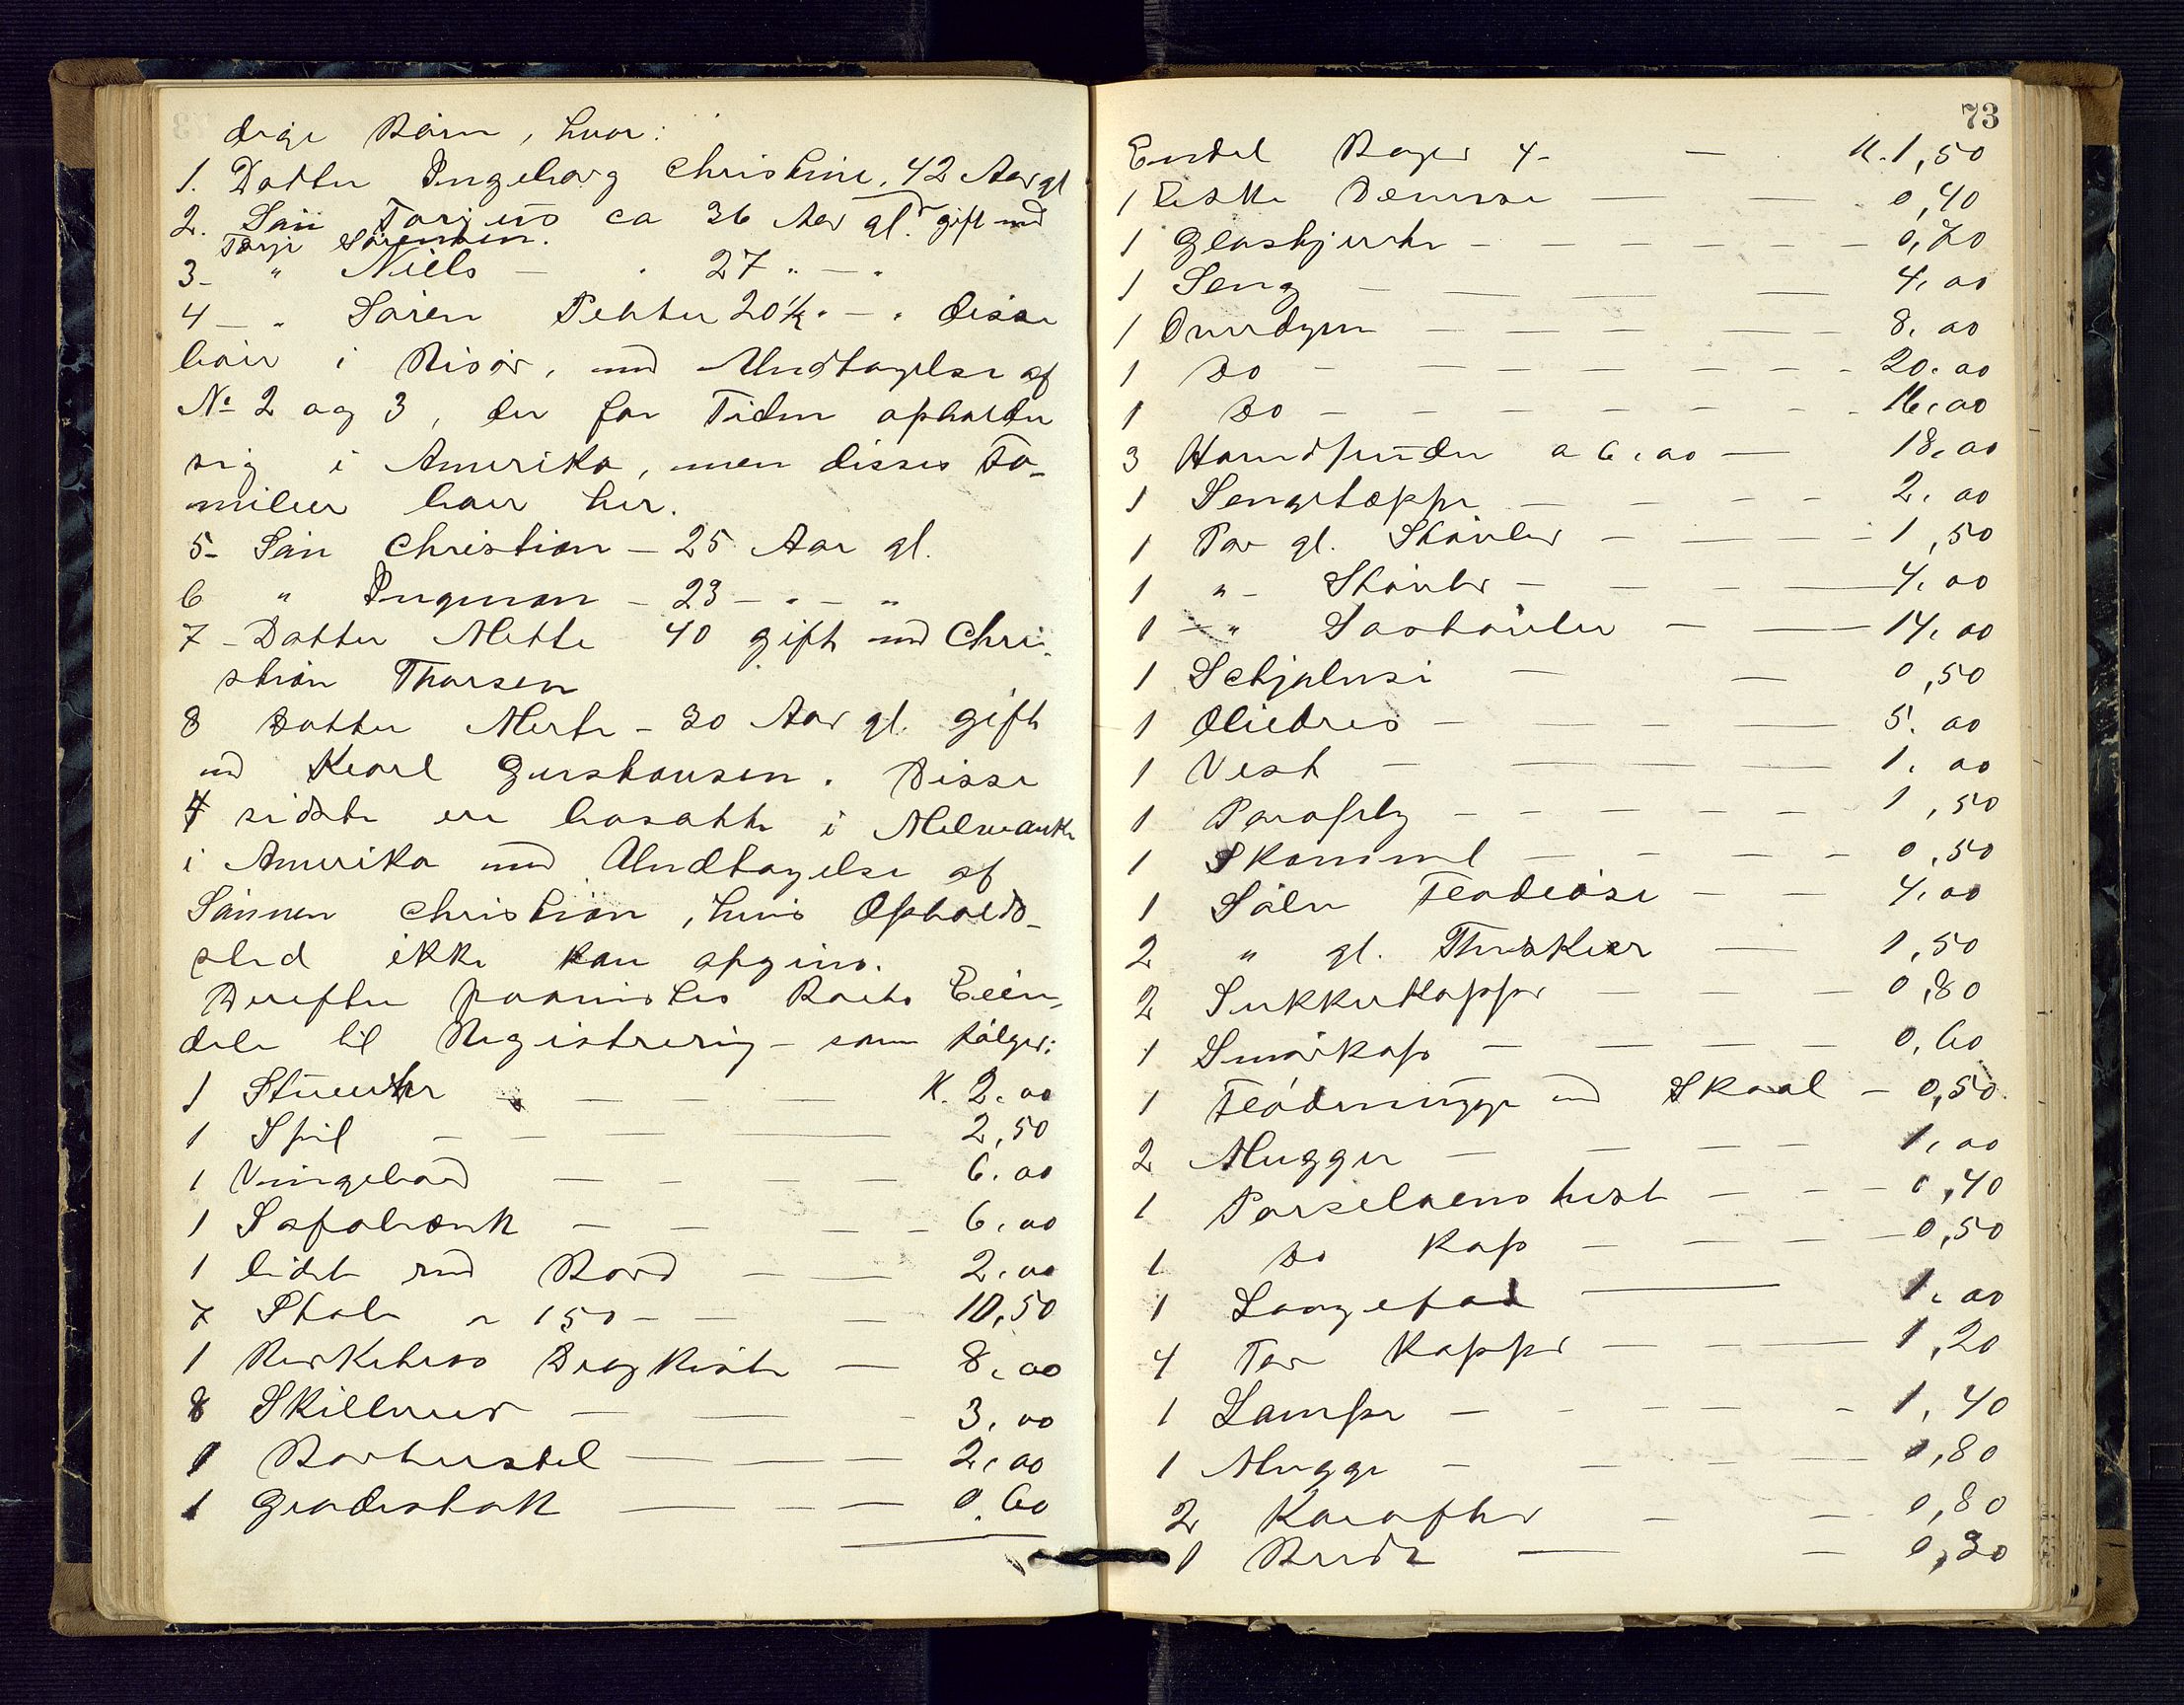 dige Børn, hvor:
1. Datter Ingeborg Christine, 42 Aar gl
gift med
Tarje Sørensen.
2. Søn Tarjus ca 36 Aar gl.
3- " Niels - " 27 " - "
4 - " Søren Petter 20½ " - " disse
boer i Risør, med Undtagelse af
No 2 og 3, der for Tiden opholder
sig i Amerika, men disses Fa-
milier boer her.
5- Søn Christian - 25 Aar gl.
6 " Ingeman - 23 - " - "
7 - Datter Mette 40 gift med Chri-
stian Thorsen
8 Datter Merte - 30 Aar gl. gift
med Karl Gustavsen. Disse
4 sidste er bosatte i Milwauke
i Amerika med Undtagelse af
Sønnen Christian, hvis Opholds-
sted ikke kan opgives.
Derefter paavistes Boets Eien-
dele til Registrering - som følger:
1 Stueuhr K. 2.00
1 Speil 2,50
1 Vingebord 6.00
1 Sofabænk 6.00
1 lidet rød Bord 2.00
7 Stole a 150 10,50
1 Birketræs Dragkiste 8.00
8 Skillerier 3.00
1 Barberstel 2.00
1 Gradestok 0.60
73
Endel Bøger 4- K. 1,50
1 Æske Demisse 0,40
1 Glashjerte 0,70
1 Seng 4.00
1 Overdyne 8.00
1 Do 20.00
1 Do 16.00
3 Hovedpuder a 6.00 18.00
1 Sengetæppe 2.00
1 Par gl. Støvler 1,50
1 " - Støvler 4.00
1 - " Søstøvler 14.00
1 0,50
1 Oliedres 5.00
1 Vest 1.00
1 Paraply 1,50
1 Skammel 0,50
1 Sølv Flødeøse 4.00
2 " gl. Theskeer 1,50
2 Sukkerkopper 0,80
1 Smørkop 0,60
1 Flødemugge med Skaal 0,50
2 Mugger 1.00
1 Porselaens hest 0,40
1 Do Kop 0,50
1 Langefad 1.00
4 Par Kopper 1,20
1 Lampe 1,40
1 Mugge 0,80
2 Karafler 0,80
1 Bridt 0,30